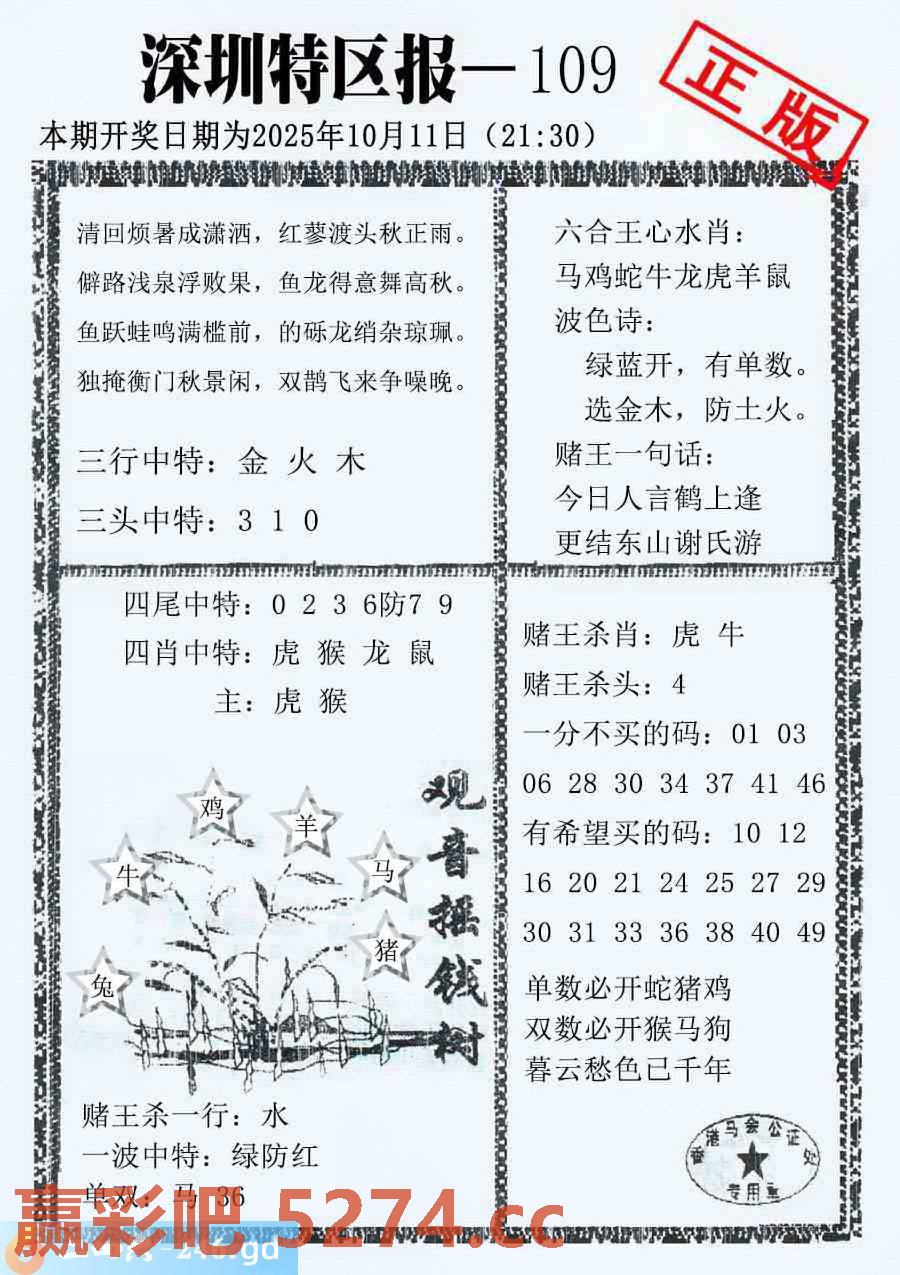 深圳特区报—109
正版
本期开奖日期为2025年10月11日（21:30）
清回烦暑成潇洒，红蓼渡头秋正雨。
僻路浅泉浮败果，鱼龙得意舞高秋。
鱼跃蛙鸣满槛前，的砾龙绡杂琼珮。
独掩衡门秋景闲，双鹊飞来争噪晚。
三行中特：金 火 木
三头中特：3 1 0
六合王心水肖：
马鸡蛇牛龙虎羊鼠
波色诗：
绿蓝开，有单数。
选金木，防土火。
赌王一句话：
今日人言鹤上逢
更结东山谢氏游
四尾中特：0 2 3 6防7 9
四肖中特：虎 猴 龙 鼠
主：虎 猴
鸡
羊
牛
马
猪
兔
观音摇钱树
赌王杀一行：水
一波中特：绿防红
单双：马 36
赌王杀肖：虎 牛
赌王杀头：4
一分不买的码：01 03
06 28 30 34 37 41 46
有希望买的码：10 12
16 20 21 24 25 27 29
30 31 33 36 38 40 49
单数必开蛇猪鸡
双数必开猴马狗
暮云愁色已千年
香港马会公证处
专用章
赢彩吧 5274.cc